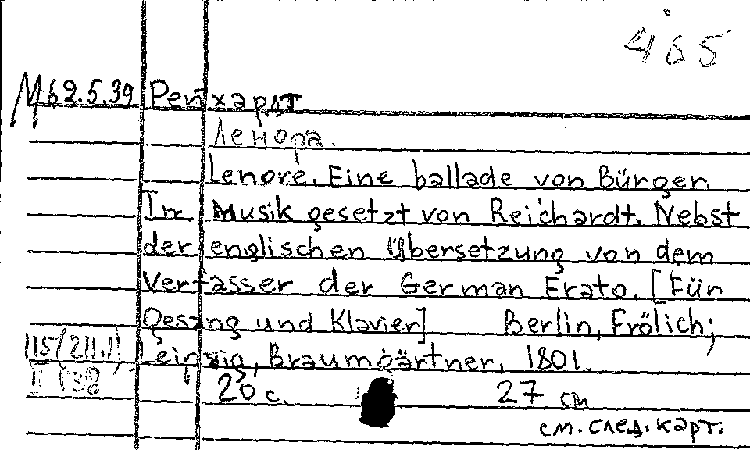 465
М62.5.39 Рейхардт
Ленора.
Lenore. Eine ballade von Bürger
In Musik gesetzt von Reichardt. Nebst
der englischen Übersetzung von dem
Verfasser der German Erato. [Für
Gesang und Klavier] Berlin, Frölich;
Leipzig, Braumgärtner, 1801.
20 с. 27 см
см. след. карт.